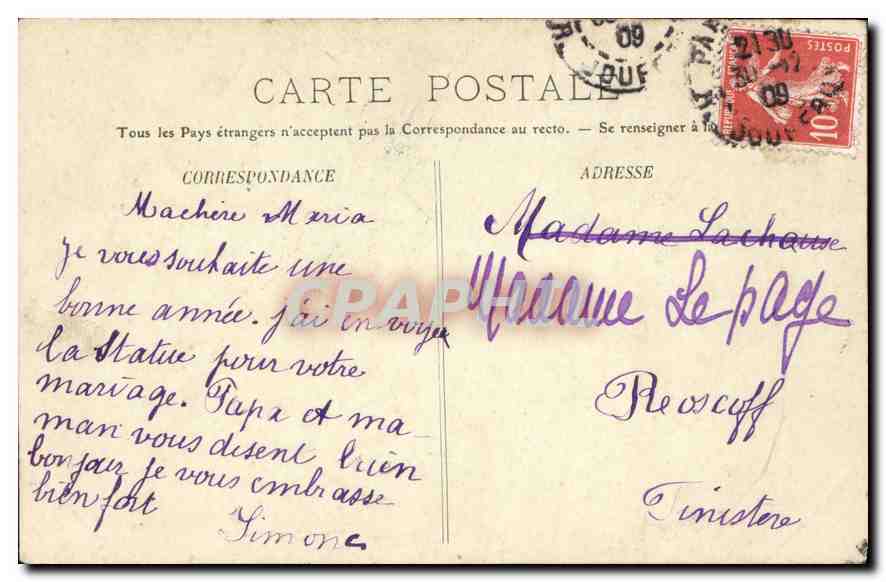 CARTE POSTALE
Tous les Pays étrangers n'acceptent pas la Correspondance au recto. — Se renseigner à la
CORRESPONDANCE
Machère Maria
je vous souhaite une
bonne année. j'ai en voyer
la statue pour votre
mariage. Papa et ma-
man vous disent bien
bonjour je vous embrasse
bien fort
Simone
ADRESSE
Madame Lachause
Madame Le page
Roscoff
Finistere
POSTES
10
21 30
30 - 12
09
09
CPAPHIL